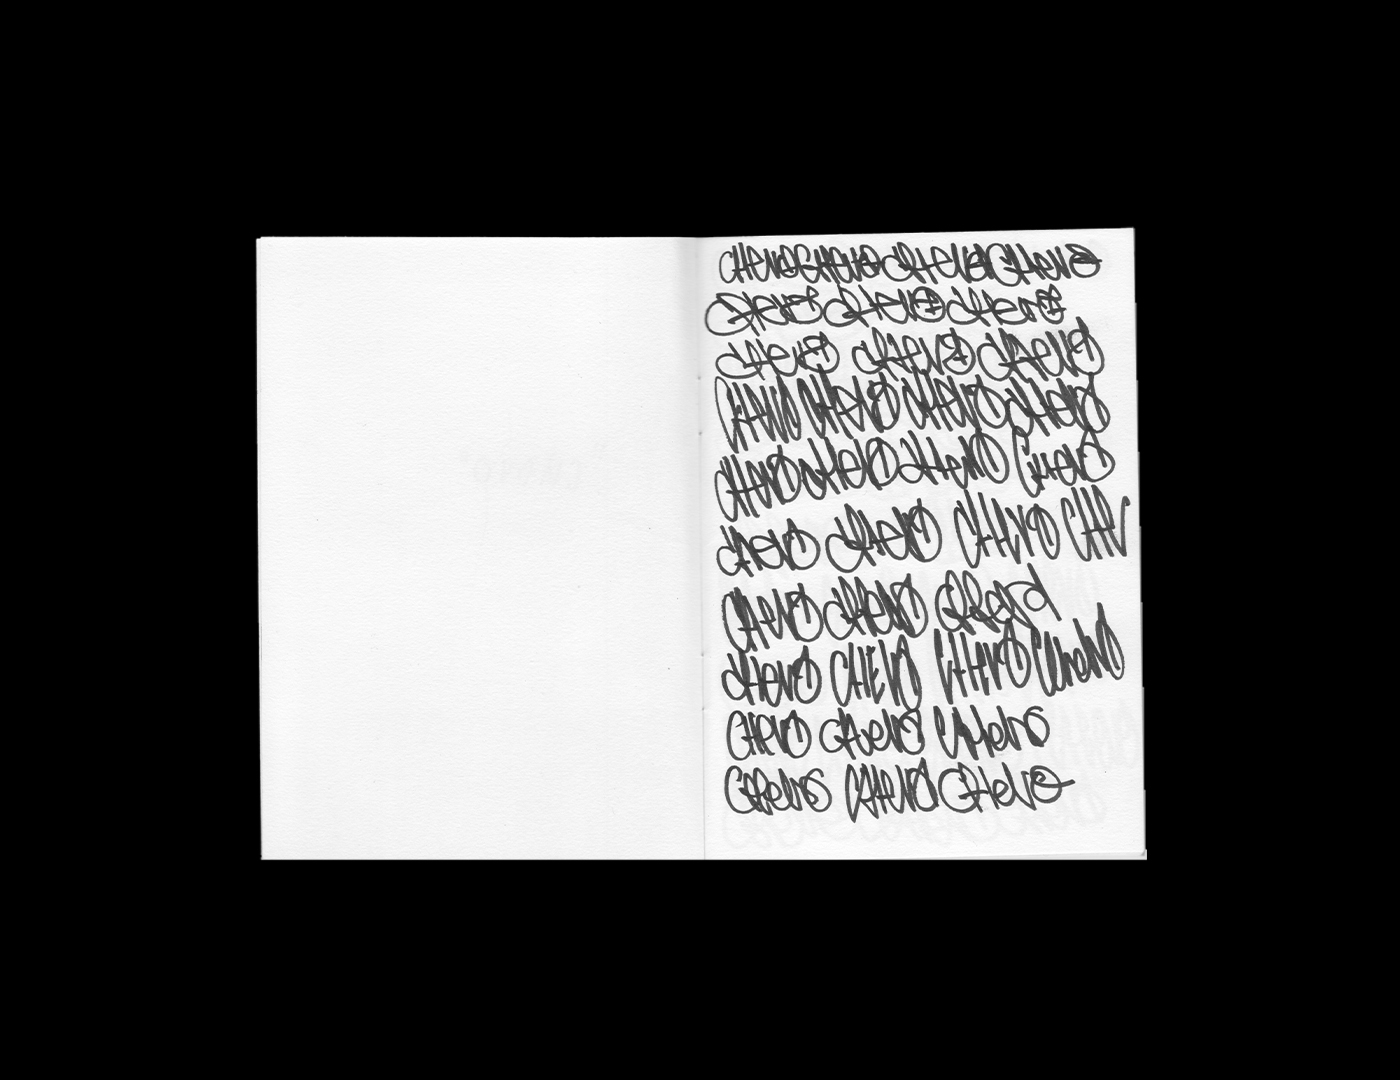 CHeVO CHeVO CHeVO CHeVO
CHeVO CHeVO CHeVO
CHeVO CHeVO CHeVO
CHEVO CHEVO CHEVO CHeVO
CHeVO CHeVO CHeVO CHeVO
CHeVO CHeVO CHEVO CHEV
CHeVO CHeVO CHeVO
CHeVO CHEVO CHEVO CheVO
CHEVO CHeVO CHeVO
CHeVO CHEVO CHeVO